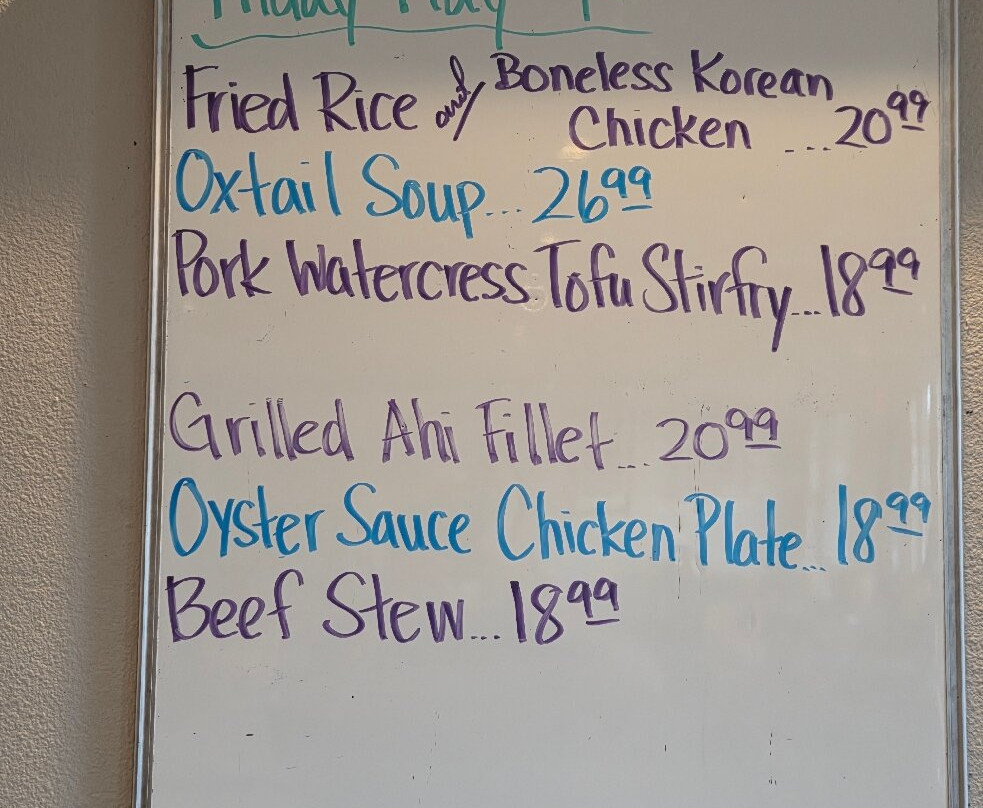 Friday May
Fried Rice and Boneless Korean
Chicken ... 20 99
Oxtail Soup... 26 99
Pork Watercress Tofu Stirfry... 18 99
Grilled Ahi Fillet... 20 99
Oyster Sauce Chicken Plate... 18 99
Beef Stew... 18 99